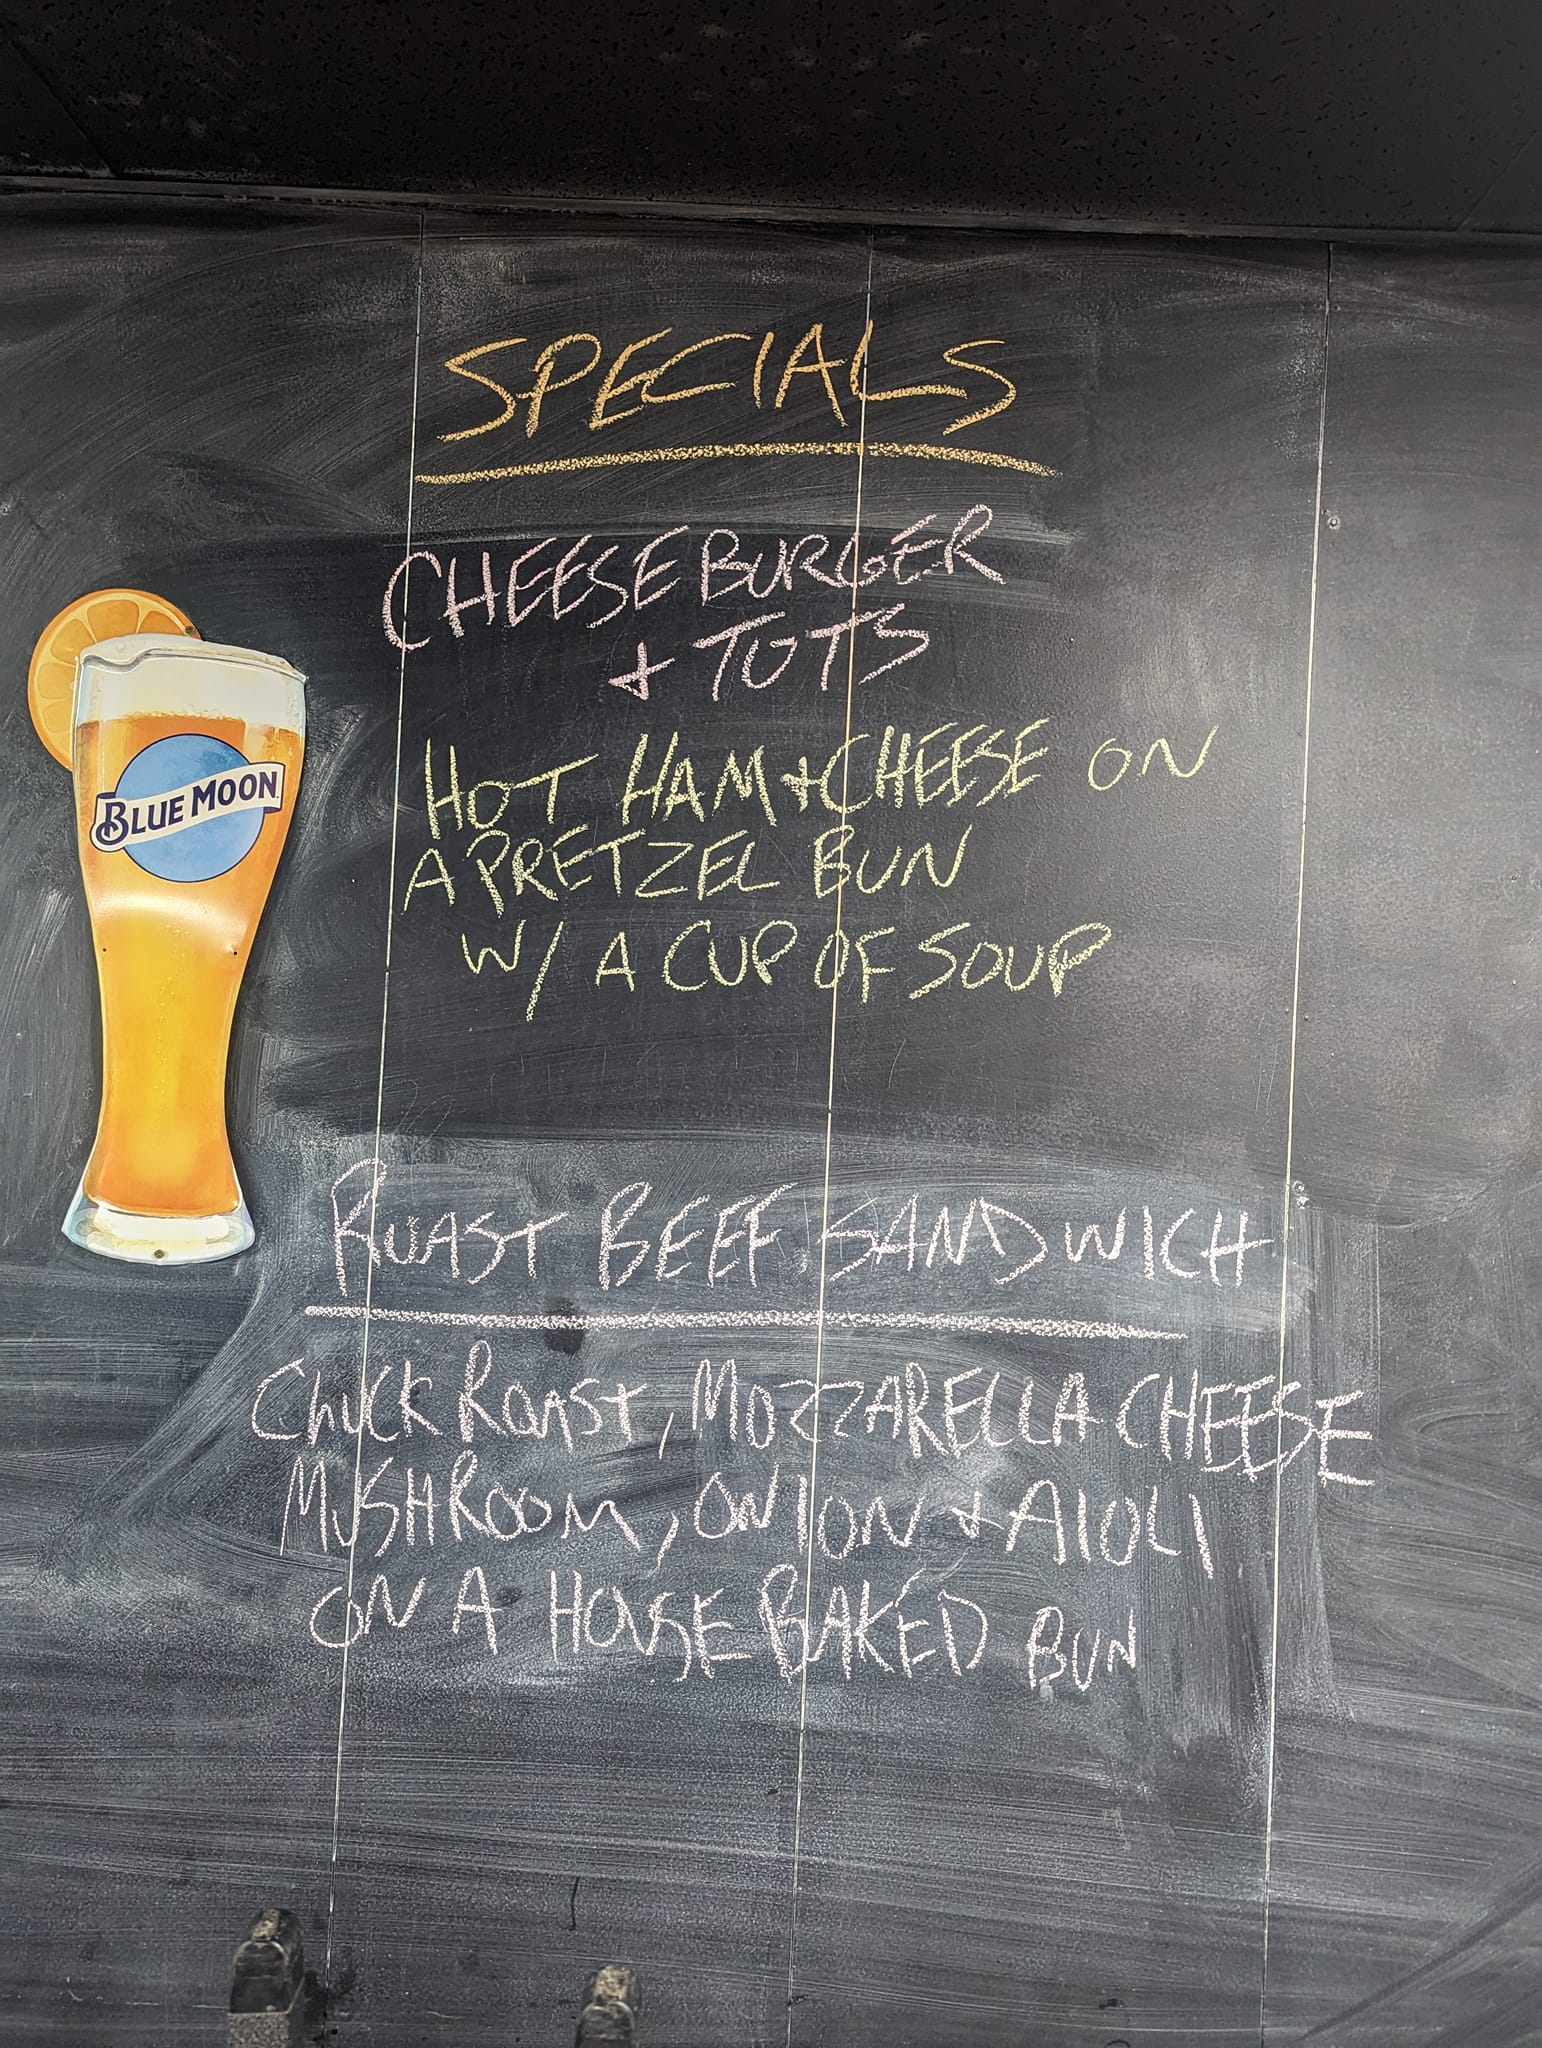 SPECIALS
CHEESEBURGER
+ TOTS
HOT HAM + CHEESE ON
A PRETZEL BUN
W/ A CUP OF SOUP
BLUE MOON
ROAST BEEF SANDWICH
CHUCK ROAST, MOZZARELLA CHEESE
MUSHROOM, ONION + AIOLI
ON A HOUSE BAKED BUN